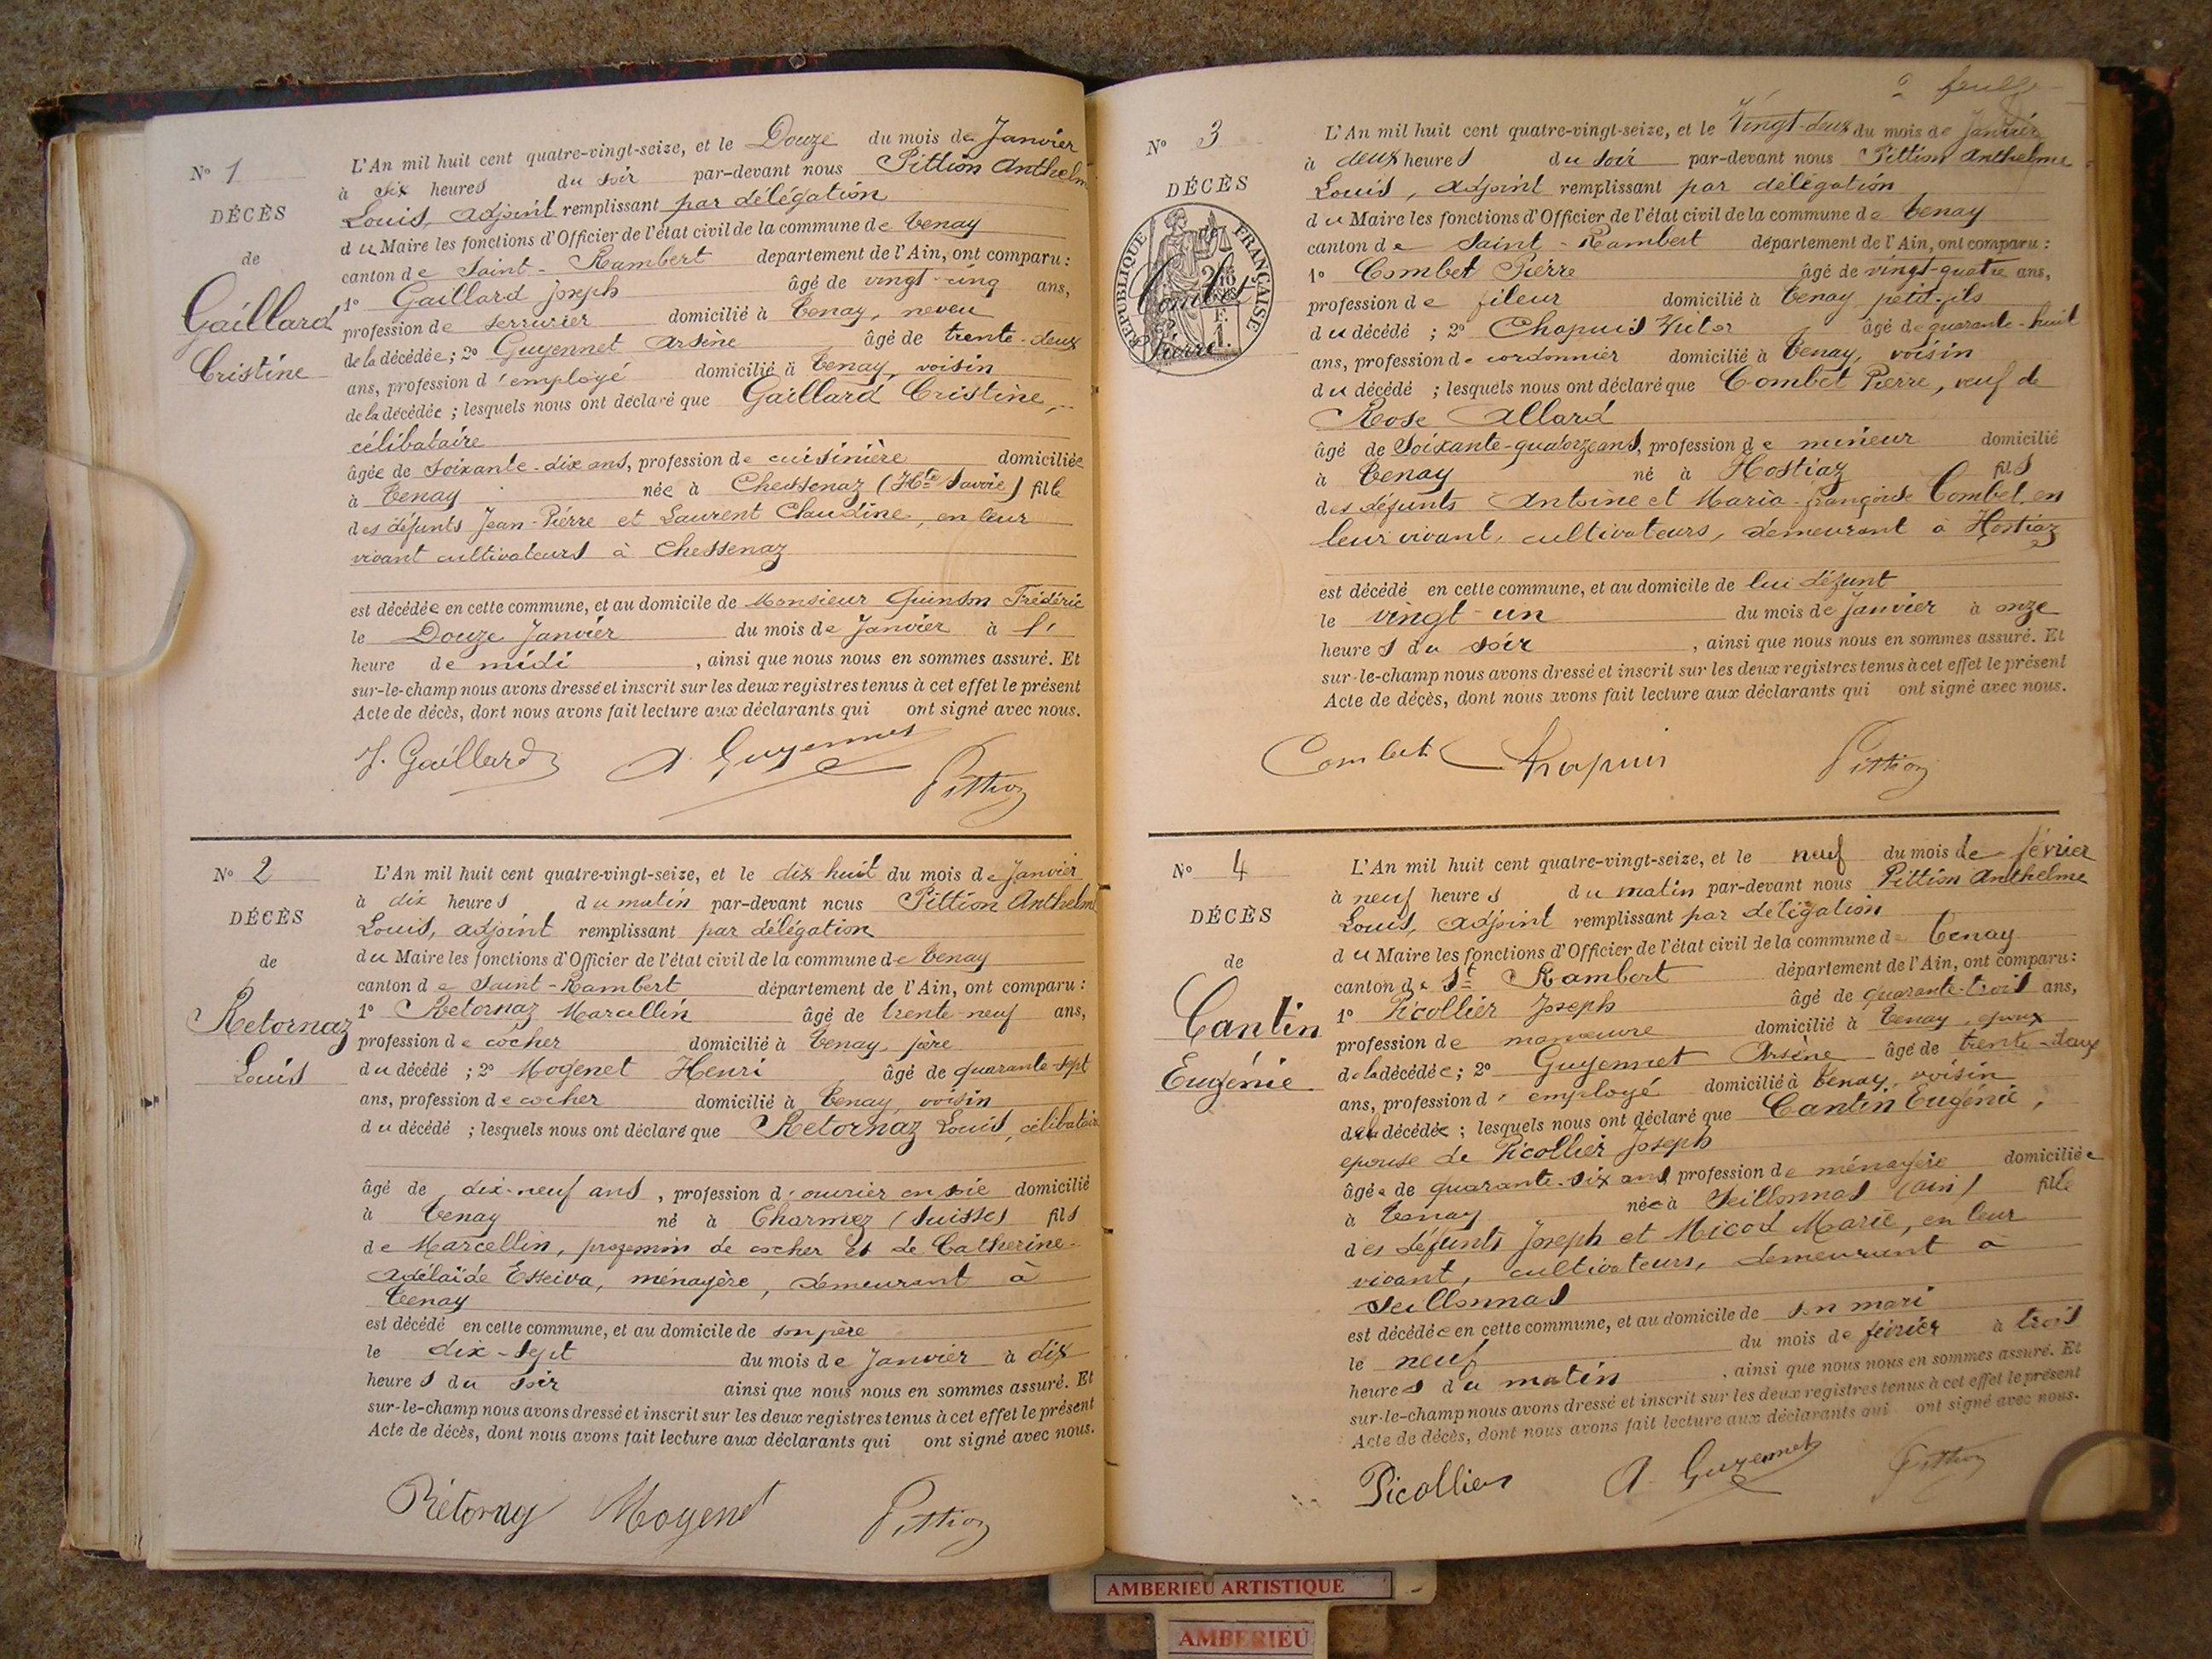 N° 1
DÉCÈS
de
Gaillard
Cristine
L'An mil huit cent quatre-vingt-seize, et le Douze du mois de Janvier
à six heures du soir par-devant nous Pittion Anthelm
Louis, adjoint remplissant par délégation
du Maire les fonctions d'Officier de l'état civil de la commune de Tenay
canton de Saint-Rambert département de l'Ain, ont comparu :
1° Gaillard Joseph âgé de vingt-cinq ans,
profession de serrurier domicilié à Tenay, neveu
de la décédée ; 2° Guyennet Arsène âgé de trente-deux
ans, profession d'employé domicilié à Tenay, voisin
de la décédée ; lesquels nous ont déclaré que Gaillard Cristine,
célibataire
âgée de soixante-dix ans, profession de cuisinière domiciliée
à Tenay née à Chessenaz (Hte Savoie) fille
des défunts Jean-Pierre et Laurent Claudine, en leur
vivant cultivateurs à Chessenaz
est décédée en cette commune, et au domicile de Monsieur Quinson Frédéric
le Douze Janvier du mois de Janvier à l'
heure de midi , ainsi que nous nous en sommes assuré. Et
sur-le-champ nous avons dressé et inscrit sur les deux registres tenus à cet effet le présent
Acte de décès, dont nous avons fait lecture aux déclarants qui ont signé avec nous.
J. Gaillard A. Guyennet Pittion
N° 2
DÉCÈS
de
Retornaz
Louis
L'An mil huit cent quatre-vingt-seize, et le dix huit du mois de Janvier
à dix heures du matin par-devant nous Pittion Anthelm
Louis, adjoint remplissant par délégation
du Maire les fonctions d'Officier de l'état civil de la commune de Tenay
canton de Saint-Rambert département de l'Ain, ont comparu :
1° Retornaz Marcellin âgé de trente-neuf ans,
profession de cocher domicilié à Tenay, père
du décédé ; 2° Mogenet Henri âgé de quarante-sept
ans, profession de cocher domicilié à Tenay, voisin
du décédé ; lesquels nous ont déclaré que Retornaz Louis, célibataire
âgé de dix-neuf ans, profession d'ouvrier en soie domicilié
à Tenay né à Charmez (Suisse) fils
de Marcellin, de cocher et de Catherine-
Adélaïde Esseiva, ménagère, demeurant à
Tenay
est décédé en cette commune, et au domicile de son père
le dix-sept du mois de Janvier à dix
heures du soir ainsi que nous nous en sommes assuré. Et
sur-le-champ nous avons dressé et inscrit sur les deux registres tenus à cet effet le présent
Acte de décès, dont nous avons fait lecture aux déclarants qui ont signé avec nous.
Rétornaz Mogenet Pittion
2 feuille
N° 3
DÉCÈS
RÉPUBLIQUE FRANÇAISE
Combet
Pierre
L'An mil huit cent quatre-vingt-seize, et le Vingt-deux du mois de Janvier
à deux heures du soir par-devant nous Pittion Anthelme
Louis, adjoint remplissant par délégation
du Maire les fonctions d'Officier de l'état civil de la commune de Tenay
canton de Saint-Rambert département de l'Ain, ont comparu :
1° Combet Pierre âgé de vingt-quatre ans,
profession de fileur domicilié à Tenay petit-fils
du décédé ; 2° Chapuis Victor âgé de quarante-huit
ans, profession de cordonnier domicilié à Tenay, voisin
du décédé ; lesquels nous ont déclaré que Combet Pierre, veuf de
Rose Allard
âgé de soixante-quatorze ans, profession de mineur domicilié
à Tenay né à Hostiaz fils
des défunts Antoine et Maria-Françoise Combet, en
leur vivant, cultivateurs, demeurant à Hostiaz
est décédé en cette commune, et au domicile de lui défunt
le vingt-un du mois de Janvier à onze
heures du soir , ainsi que nous nous en sommes assuré. Et
sur-le-champ nous avons dressé et inscrit sur les deux registres tenus à cet effet le présent
Acte de décès, dont nous avons fait lecture aux déclarants qui ont signé avec nous.
Combet Chapuis Pittion
N° 4
DÉCÈS
de
Cantin
Eugénie
L'An mil huit cent quatre-vingt-seize, et le neuf du mois de février
à neuf heures du matin par-devant nous Pittion Anthelme
Louis, adjoint remplissant par délégation
du Maire les fonctions d'Officier de l'état civil de la commune de Tenay
canton de St Rambert département de l'Ain, ont comparu :
1° Picollier Joseph âgé de quarante-trois ans,
profession de manœuvre domicilié à Tenay, époux
de la décédée ; 2° Guyennet Arsène âgé de trente-deux
ans, profession d'employé domicilié à Tenay, voisin
de la décédée ; lesquels nous ont déclaré que Cantin Eugénie,
épouse de Picollier Joseph
âgée de quarante-six ans, profession de ménagère domiciliée
à Tenay née à Seillonnas (Ain) fille
des défunts Joseph et Micod Marie, en leur
vivant, cultivateurs, demeurant à
Seillonnas
est décédée en cette commune, et au domicile de son mari
le neuf du mois de février à trois
heures du matin , ainsi que nous nous en sommes assuré. Et
sur-le-champ nous avons dressé et inscrit sur les deux registres tenus à cet effet le présent
Acte de décès, dont nous avons fait lecture aux déclarants qui ont signé avec nous.
Picollier A. Guyennet Pittion
AMBERIEU ARTISTIQUE
AMBERIEU